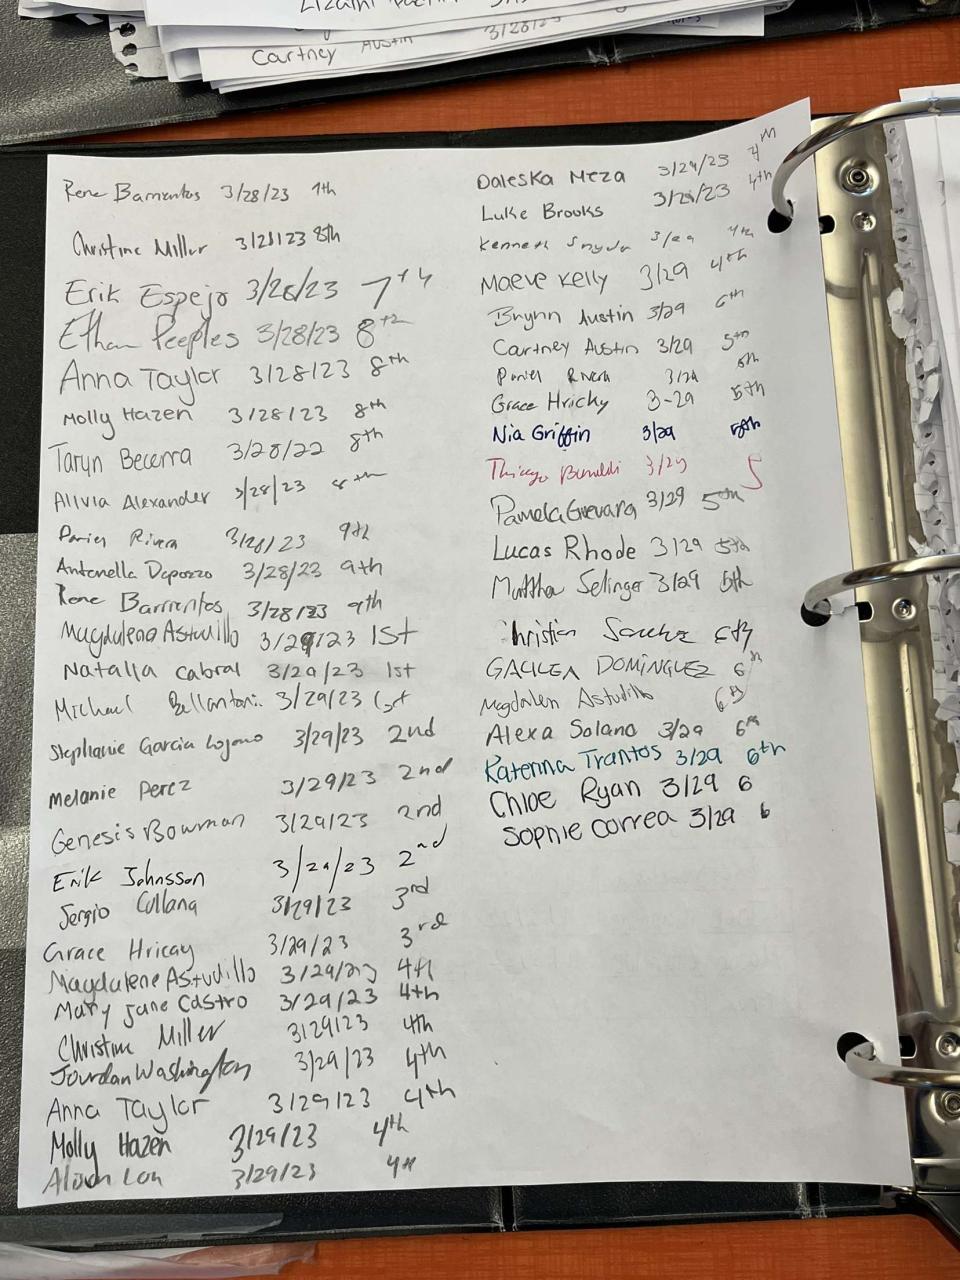 Cartney Austin 3/28/23
Rene Barrientos 3/28/23 7th
Christine Miller 3/28/23 8th
Erik Espejo 3/28/23 7th
Ethan Peeples 3/28/23 8th
Anna Taylor 3/28/23 8th
Molly Hazen 3/28/23 8th
Taryn Becerra 3/28/22 8th
Alivia Alexander 3/28/23 8th
Daniel Rivera 3/28/23 9th
Antonella Dapozzo 3/28/23 9th
Rene Barrientos 3/28/23 9th
Magdalena Astudillo 3/29/23 1st
Natalia Cabral 3/29/23 1st
Michael Bellantoni 3/29/23 1st
Stephanie Garcia Lozano 3/29/23 2nd
Melanie Perez 3/29/23 2nd
Genesis Bowman 3/29/23 2nd
Erik Johnsson 3/29/23 2nd
Sergio Collana 3/29/23 3rd
Grace Hricay 3/29/23 3rd
Magdalene Astudillo 3/29/23 4th
Mary Jane Castro 3/29/23 4th
Christine Miller 3/29/23 4th
Jourdan Washington 3/29/23 4th
Anna Taylor 3/29/23 4th
Molly Hazen 3/29/23 4th
3/29/23 4th
Daleska Meza 3/29/23 4th
Luke Brooks 3/29/23 4th
Kenneth 3/29 4th
Maeve Kelly 3/29 4th
Brynn Austin 3/29 6th
Cartney Austin 3/29 5th
Daniel Rivera 3/29 5th
Grace Hricky 3-29 5th
Nia Griffin 3/29 5th
Thiago 3/29 5
Pamela Guevara 3/29 5th
Lucas Rhode 3/29 5th
Matthew Selinger 3/29 5th
Christian Sanchez 6th
GALILEA DOMINGUEZ 6th
Magdalen Astudillo 6th
Alexa Solano 3/29 6th
Katerina Trantos 3/29 6th
Chloe Ryan 3/29 6
Sophie Correa 3/29 6